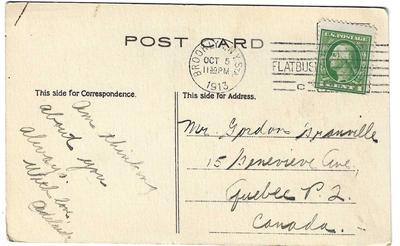 POST CARD
BROOKLYN, N.Y. STA.
OCT 5
11 30 PM
1913
FLATBUS
U.S. POSTAGE
This side for Correspondence.
This side for Address.
Am thinking
about you
always.
With love
Mr. Gordon
15 Genevieve Ave,
Quebec P. Q.
Canada.